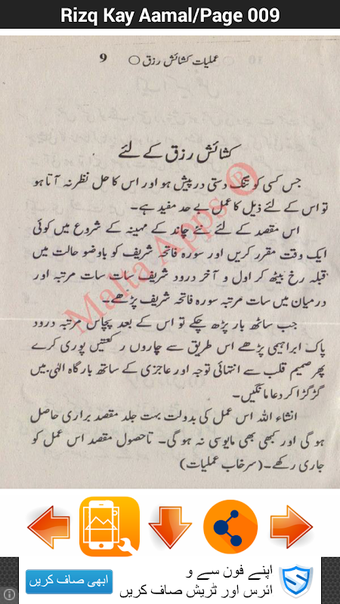 Rizq Kay Aamal/Page 009
عملیات کشائش رزق 9
کشائش رزق کے لئے
جس کسی کو تنگ دستی درپیش ہو اور اس کا حل نظر نہ آتا ہو
تو اس کے لئے ذیل کا عمل بے حد مفید ہے۔
اس مقصد کے لئے نئے چاند کے مہینہ کے شروع میں کوئی
ایک وقت مقرر کریں اور سورہ فاتحہ شریف کو باوضو حالت میں
قبلہ رخ بیٹھ کر اول و آخر درود شریف سات سات مرتبہ اور
درمیان میں سات مرتبہ سورہ فاتحہ شریف پڑھے۔
جب ساٹھ بار پڑھ چکے تو اس کے بعد پچاس مرتبہ درود
پاک ابراہیمی پڑھے اس طریق سے چاروں رکعتیں پوری کرے
پھر صمیم قلب سے انتہائی توجہ اور عاجزی کے ساتھ بارگاہ الٰہی میں
گڑگڑا کر دعا مانگیں۔
انشاء اللہ اس عمل کی بدولت بہت جلد مقصد براری حاصل
ہو گی اور کبھی بھی مایوسی نہ ہو گی۔ تاحصول مقصد اس عمل کو
جاری رکھے۔ (سرخاب عملیات)
Malta Apps ®
اپنے فون سے و
ائرس اور ٹریش صاف کریں
ابھی صاف کریں